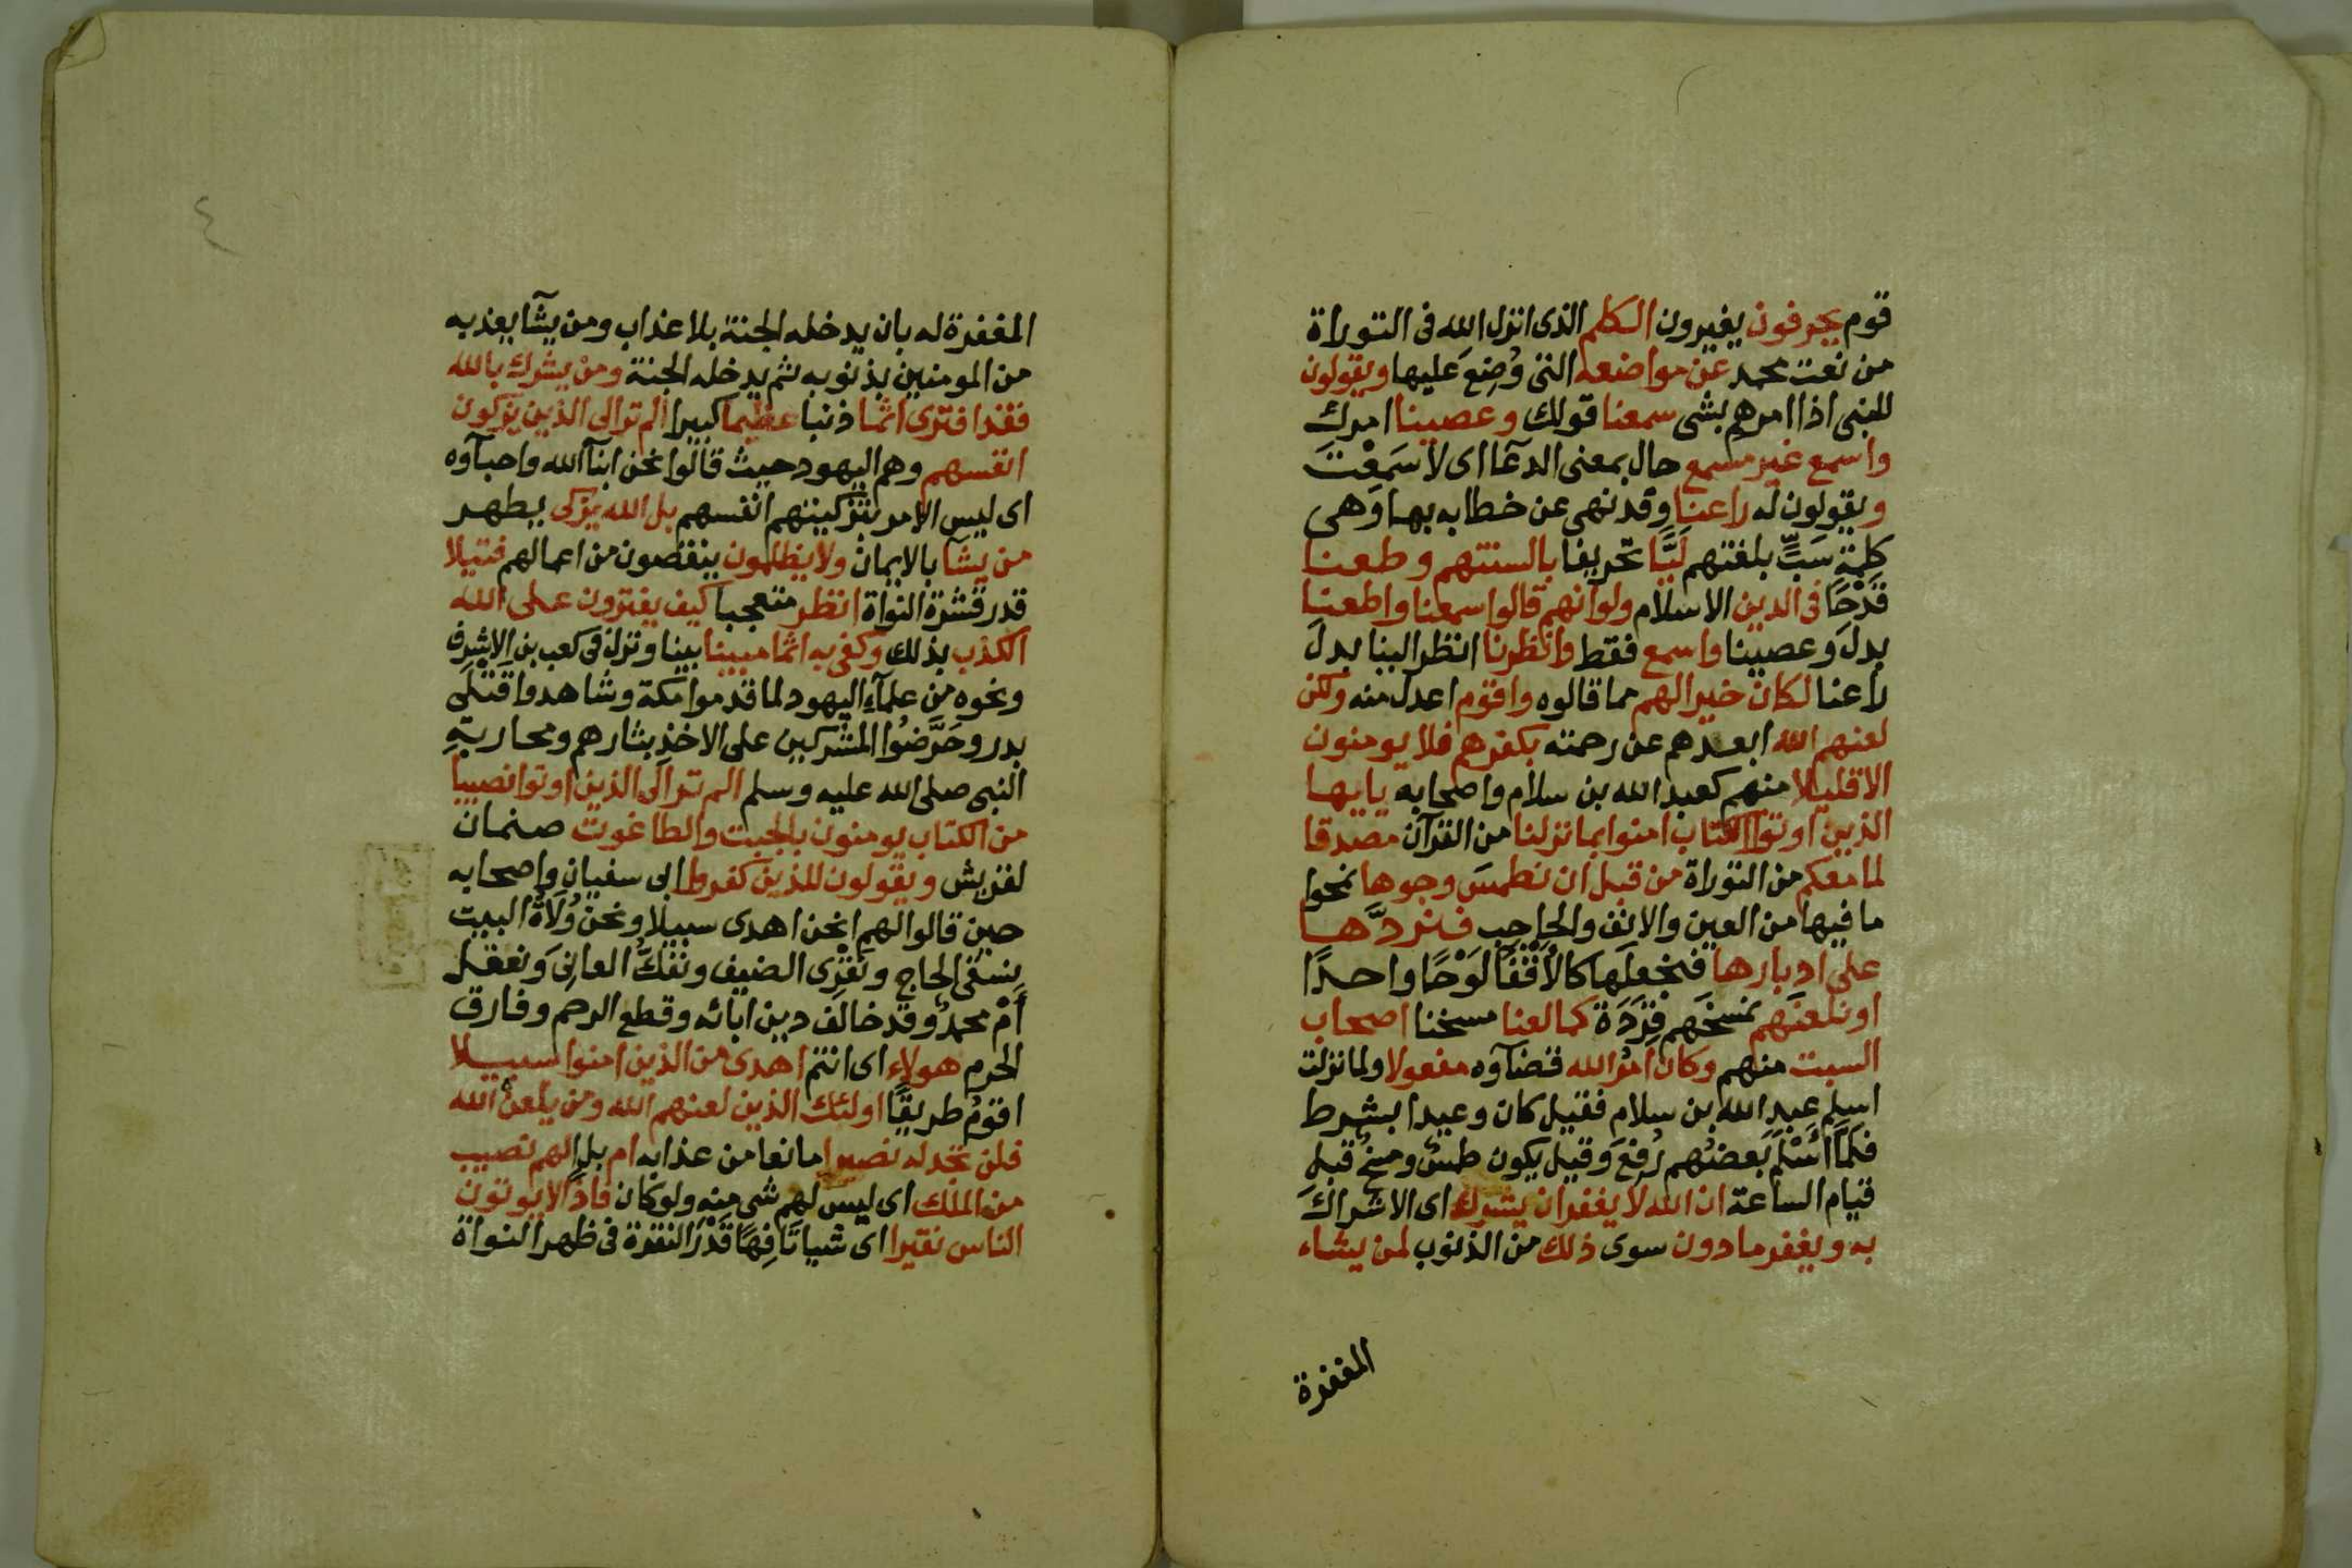 قوم يحرفون يغيرون الكلم الذى انزل الله فى التوراة
من نعت محمد عن مواضعه التى وُضِعَ عليها ويقولون
للنبى اذا امرهم بشى سمعنا قولك وعصينا امرك
واسمع غير مسمع حال بمعنى الدعآ اى لا سَمِعْتَ
ويقولون له راعنا وقد نهى عن خطابه بها وَهى
كلمة سَبٍّ بلغتهم لَيًّا تحريفا بالسنتهم وطعنا
قَدْحًا فى الدين الاسلام ولو انهم قالوا سمعنا واطعنا
بدلَ وعصينا واسمع فقط وانظرنا انظر الينا بدل
راعنا لكان خيرا لهم مما قالوه واقوم اعدل منه ولكن
لعنهم الله ابعدهم عن رحمته بكفرهم فلا يومنون
الا قليلا منهم كعبد الله بن سلام واصحابه يايها
الذين اوتوا الكتاب امنوا بما نزلنا من القرآن مصدقا
لما معكم من التوراة من قبل ان نطمسَ وجوها نمحوا
ما فيها من العين والانف والحاجب فنردَّها
على ادبارها فنجعلَها كالأَقْفآ لَوْحًا واحدًا
او نلعنَهم نمسخَهم قِرَدَة كما لعنا مسخنا اصحاب
السبت منهم وكان امرُ الله قضآوه مفعولا ولما نزلت
اسلم عبد الله بن سلام فقيل كان وعيدا بشرط
فَلَمَّا اَسْلَمَ بَعضُهم رُفِعَ وَقيل يكون طمسٌ ومسخٌ قبل
قيام الساعة ان الله لا يغفر ان يشرك اى الاشراكَ
به ويغفر ما دون سوى ذلك من الذنوب لمن يشاء
المغفرة
٤
المغفرة له بان يدخله الجنة بلا عذاب ومن يشآ يعذبه
من المومنين بذنوبه ثم يدخله الجنة ومنْ يشرك بالله
فقد افترى اثما ذنبا عظيما كبيرا الم تر الى الذين يزكون
انفسهم وهم اليهود حيث قالوا نحن ابنآ الله واحبآوه
اى ليس الامر بتزكيتهم انفسهم بل الله يزكى يطهر
من يشآ بالايمان ولا يظلمون ينقصون من اعمالهم فتيلا
قدر قشرة النواة انظر متعجبا كيف يفترون على الله
الكذب بذلك وكفى به اثما مبينا بينا ونزل فى كعب بن الاشرف
ونحوه من علمآء اليهود لما قدموا مكة وشاهدوا قَتْلَى
بدر وحَرَّضُوا المشركين على الاخذ بثارهم ومحاربةِ
النبى صلى الله عليه وسلم الم تر الى الذين اوتوا نصيبا
من الكتاب يومنون بالجبت والطاغوت صنمان
لقريش ويقولون للذين كفروا ابى سفيان واصحابه
حين قالوا لهم انحن اهدى سبيلا ونحن وُلَاةُ البيت
نسقى الحاج ونَقْرِى الضيف ونفكُّ العانِىَ ونفعل
أَمْ محمدٌ وقد خالف دين ابائه وقطع الرحم وفارق
الحرم هولاء اى انتم اهدى من الذين امنوا سبيلا
اقومُ طريقًا اولئك الذين لعنهم الله ومن يلعن الله
فلن تجد له نصيرا مانعا من عذابه ام بل الهم نصيب
من الملك اى ليس لهم شى منه ولو كان فاذًا لا يوتون
الناس نقيرا اى شيا تَافِهًا قَدْرَ النقرة فى ظهر النواة